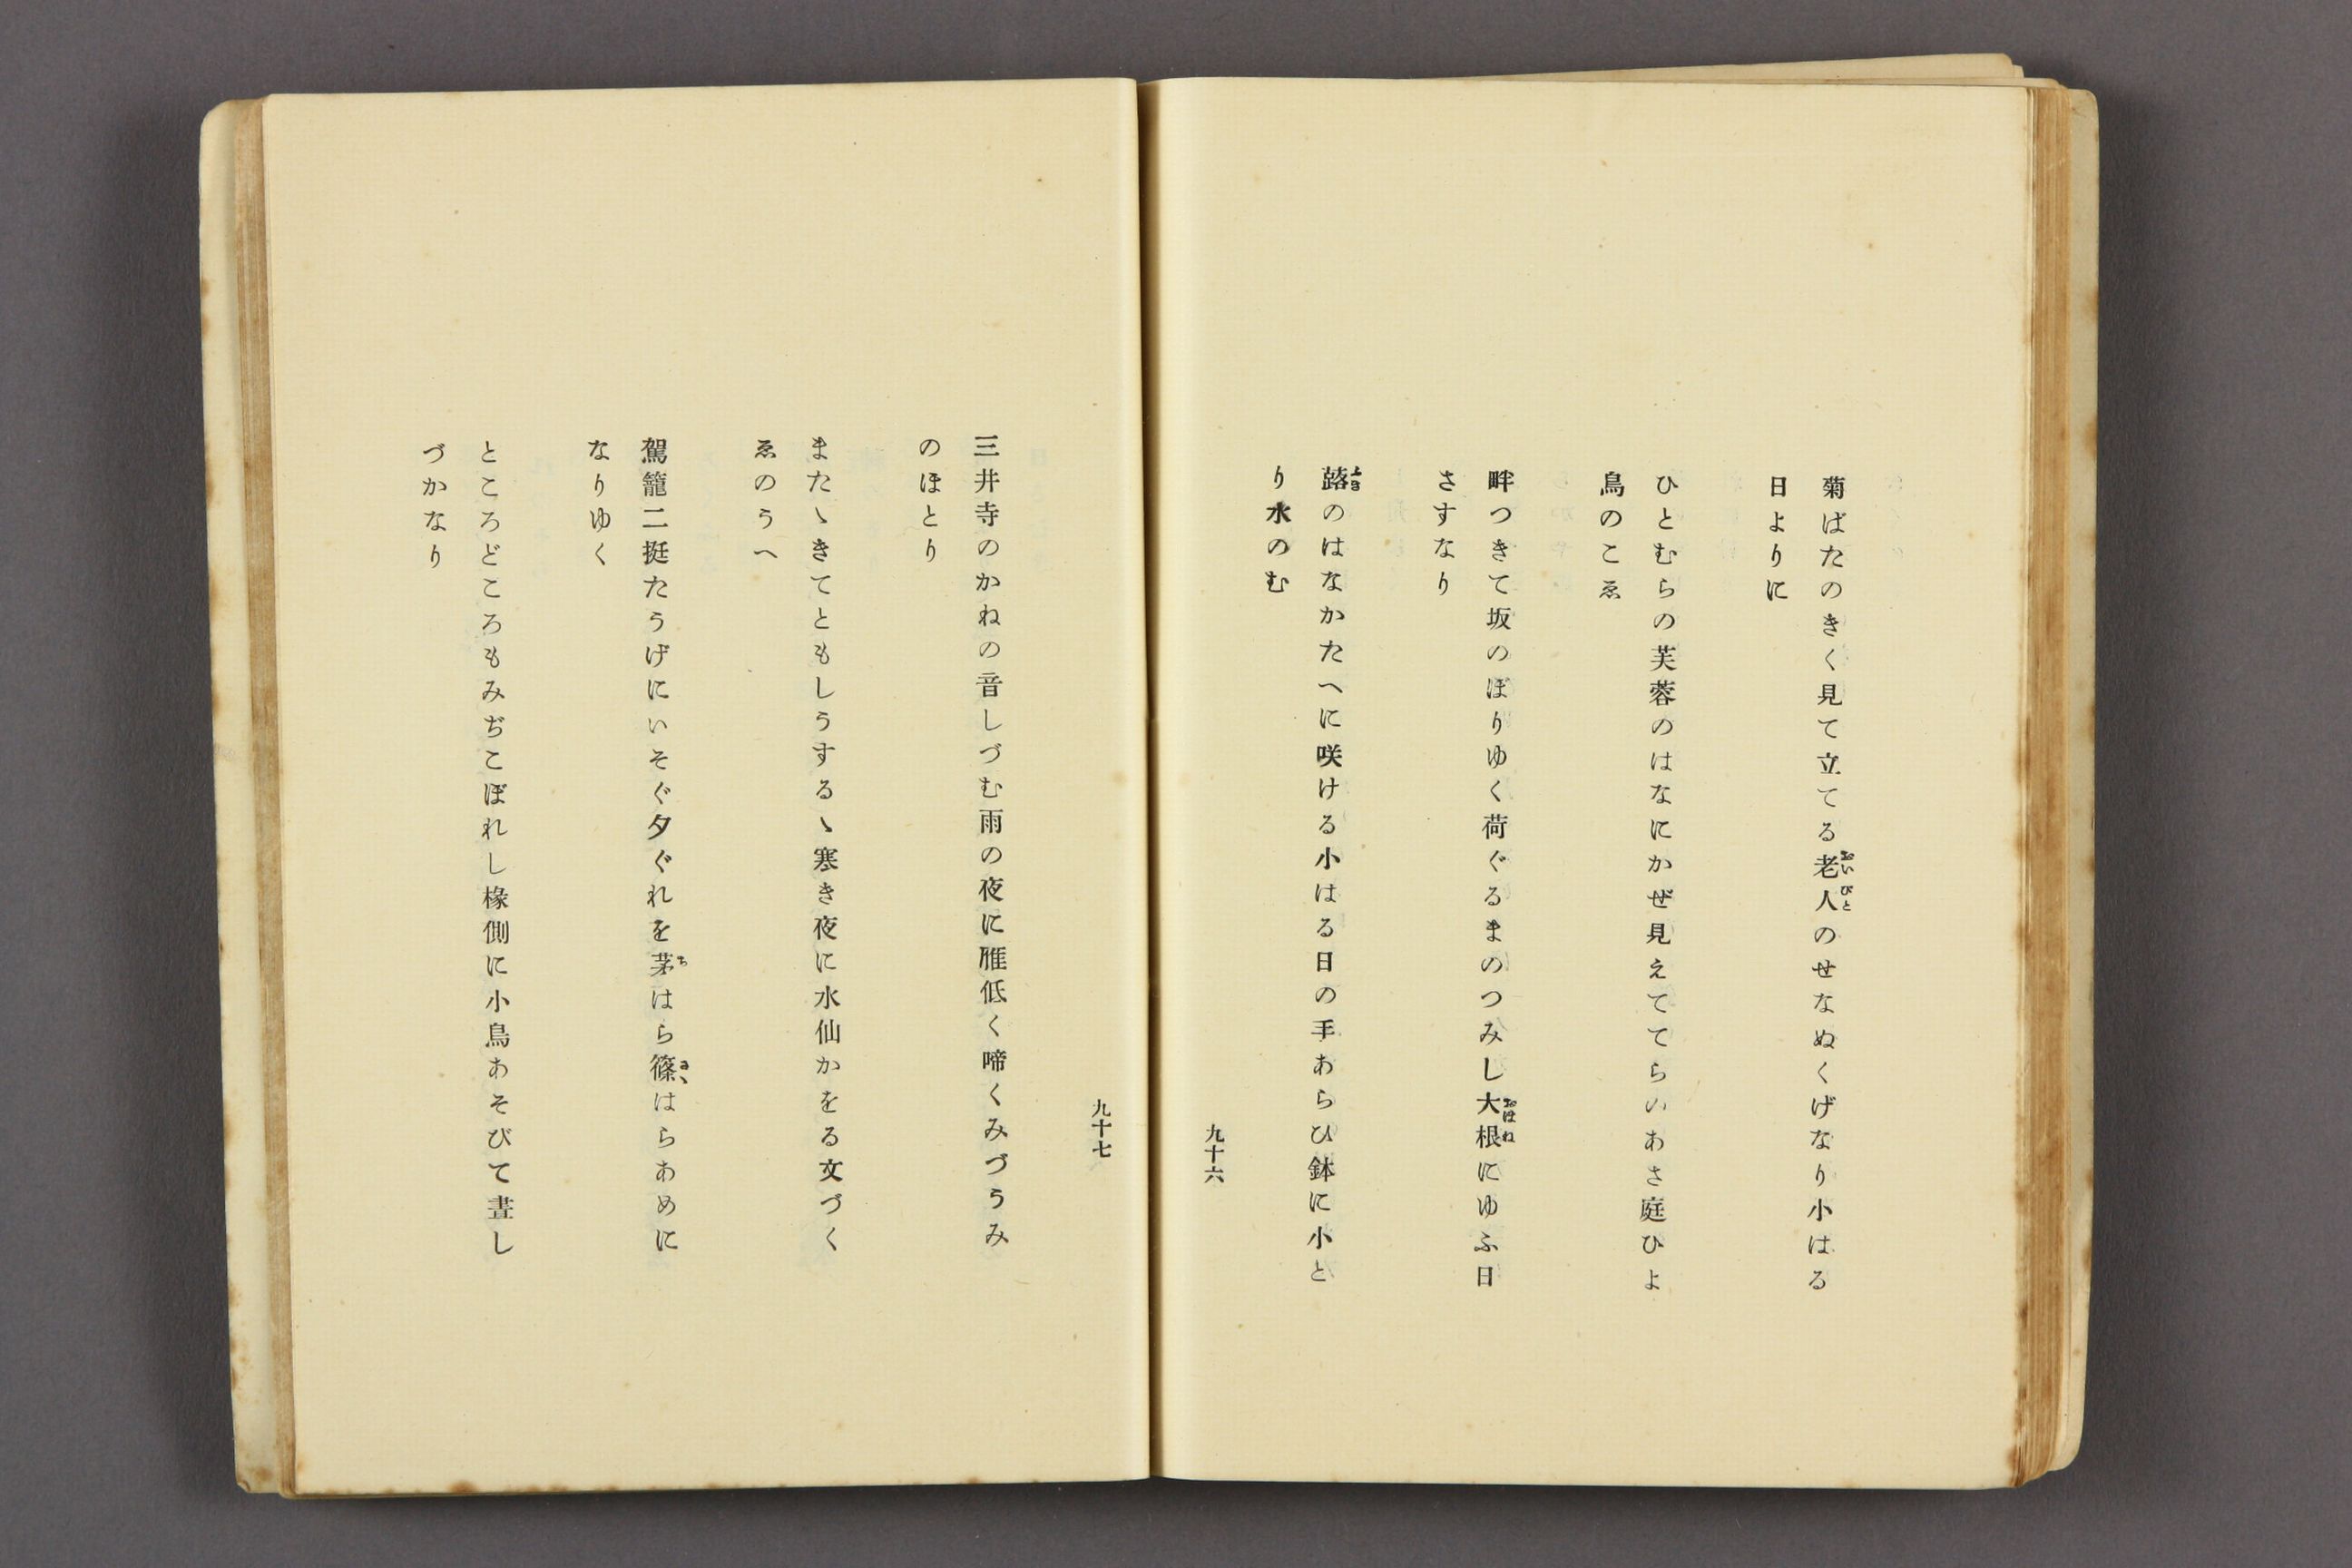 菊ばたのきく見て立てる老人のせなぬくげなり小はる
日よりに
ひとむらの芙蓉のはなにかぜ見えててらいあさ庭ひよ
鳥のこゑ
畔つきて坂のぼりゆく荷ぐるまのつみし大根にゆふ日
さすなり
蕗のはなかたへに咲ける小はる日の手あらひ鉢に小と
り水のむ
九十六
九十七
三井寺のかねの音しづむ雨の夜に雁低く啼くみづうみ
のほとり
またゝきてともしうするゝ寒き夜に水仙かをる文づく
ゑのうへ
駕籠二挺たうげにいそぐ夕ぐれを茅はら篠はらあめに
なりゆく
ところどころもみぢこぼれし椽側に小鳥あそびて晝し
づかなり